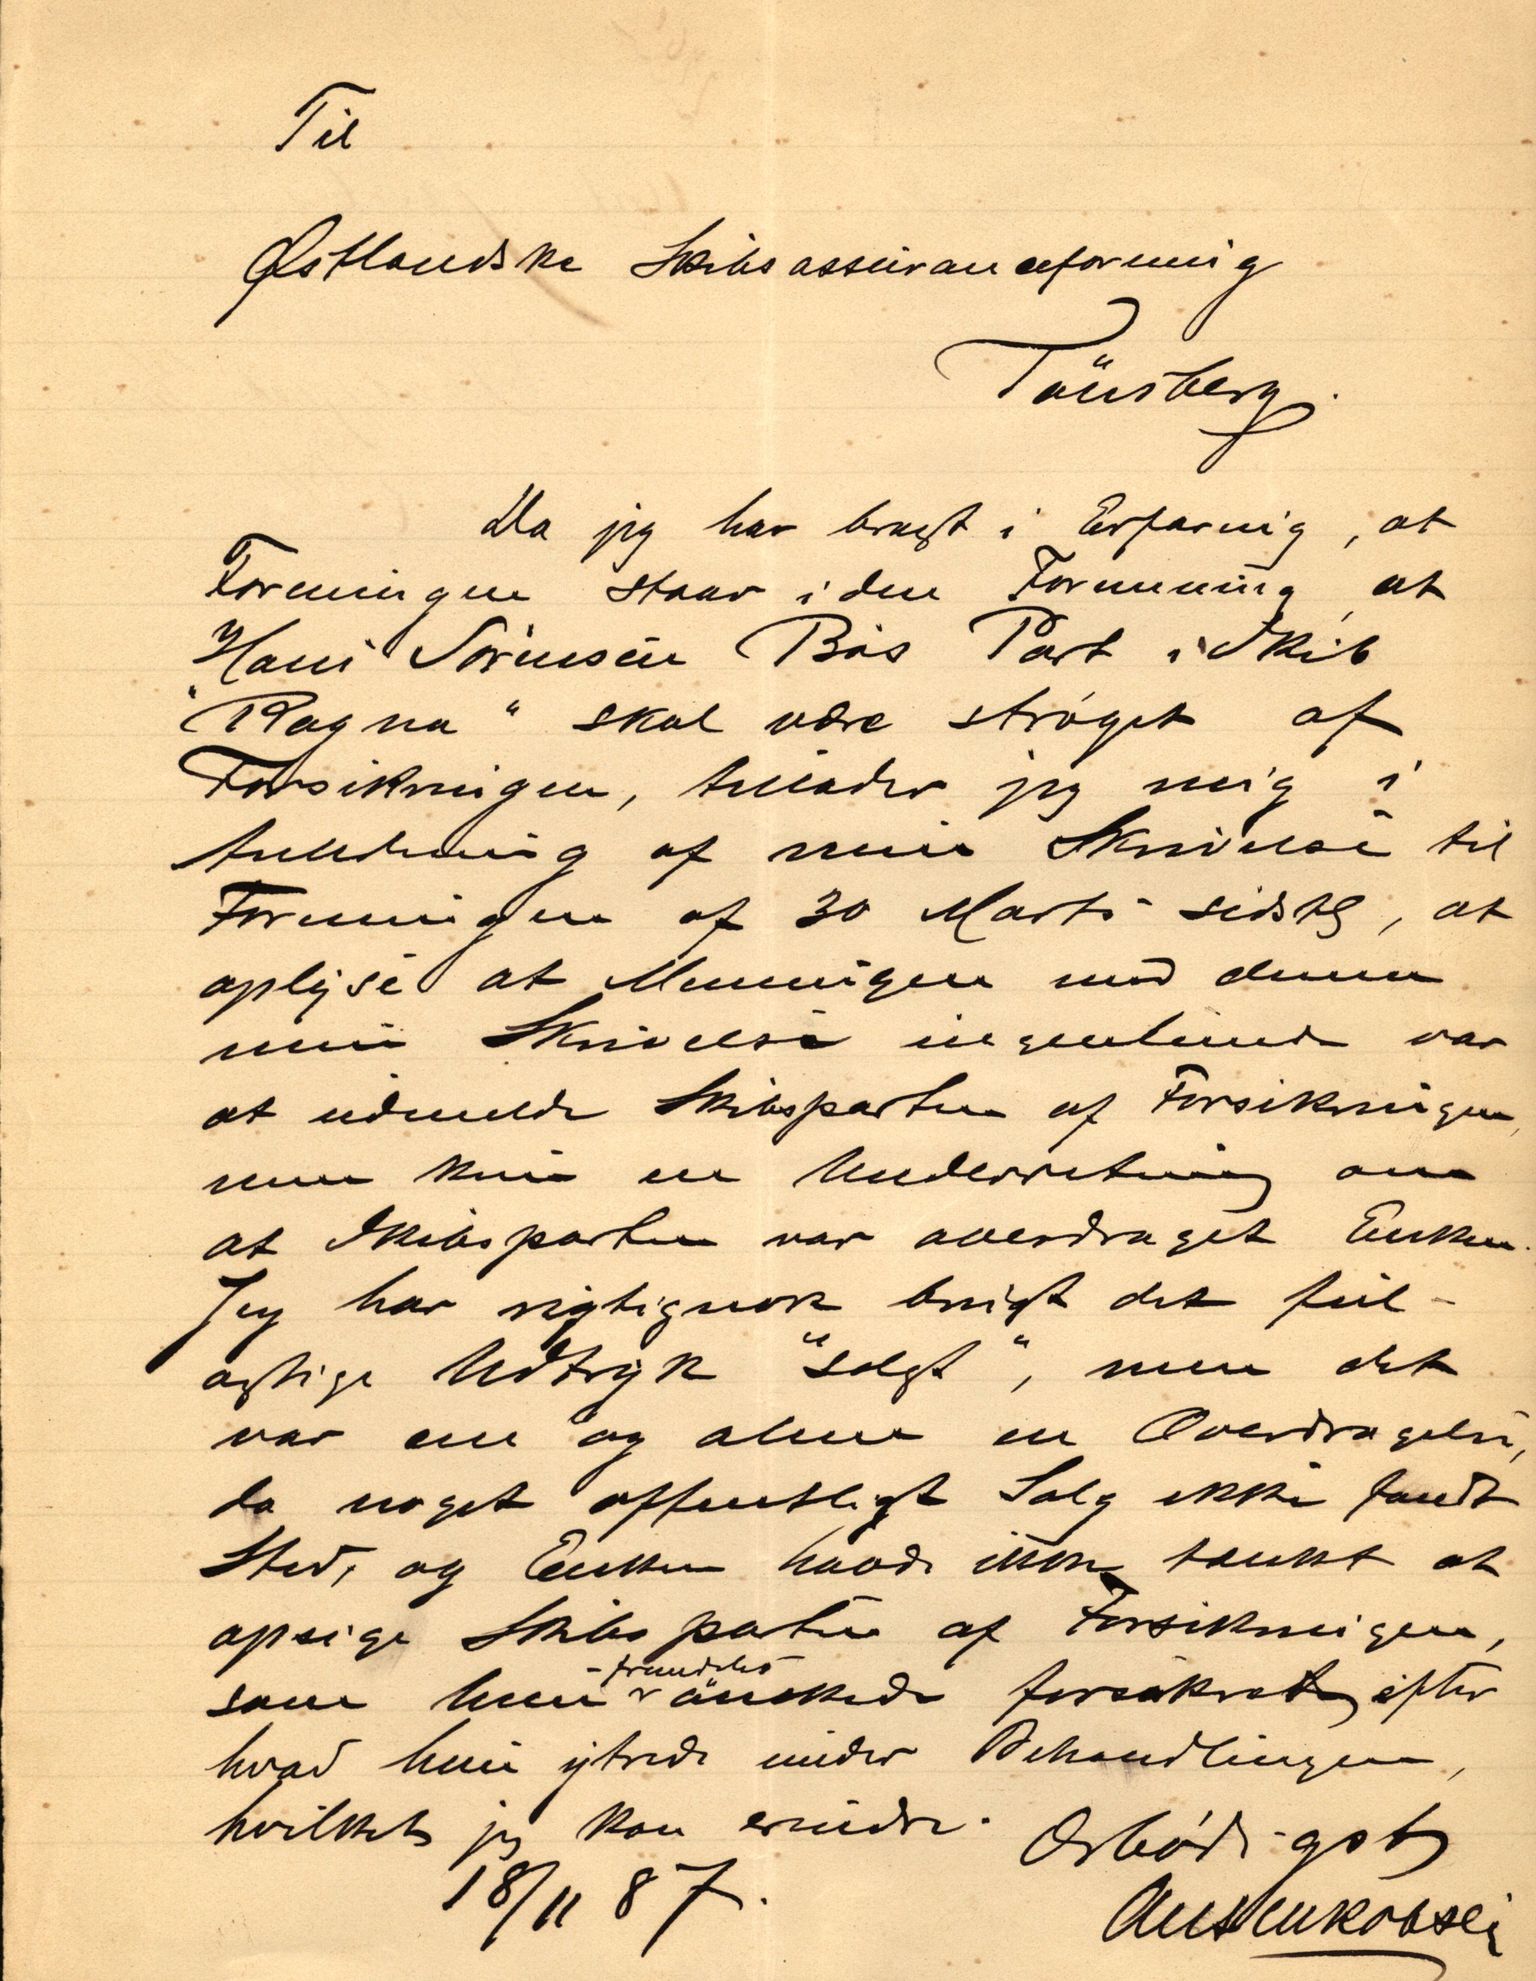 Til
Østlandske Skibsassuranceforening
Tönsberg.
Da jeg har bragt i Erfaring, at
Foreningen staar i den Formening, at
Hans Sörensen Bös Part i Skib
"Ragna" skal være strøget af
Forsikringen, tillader jeg mig i
Anledning af min Skrivelse til
Foreningen af 30 Marts sidstl, at
oplyse at Meningen med denne
min Skrivelse ingenlunde var
at udmelde Skibsparten af Forsikringen,
men kun en Underretning om
at Skibsparten var overdraget Enken.
Jeg har rigtignok brugt det feil-
agtige Udtryk "solgt", men det
var ene og alene en Overdragelse,
da noget offentligt Salg ikke fandt
Sted, og Enken havde ikke tænkt at
opsige Skibsparten af Forsikringen,
som hun fremdeles önskede forsikret, efter
hvad hun ytrede under Behandlingen,
hvilket jeg kan erindre.
Ærbödigst
18/11 87.